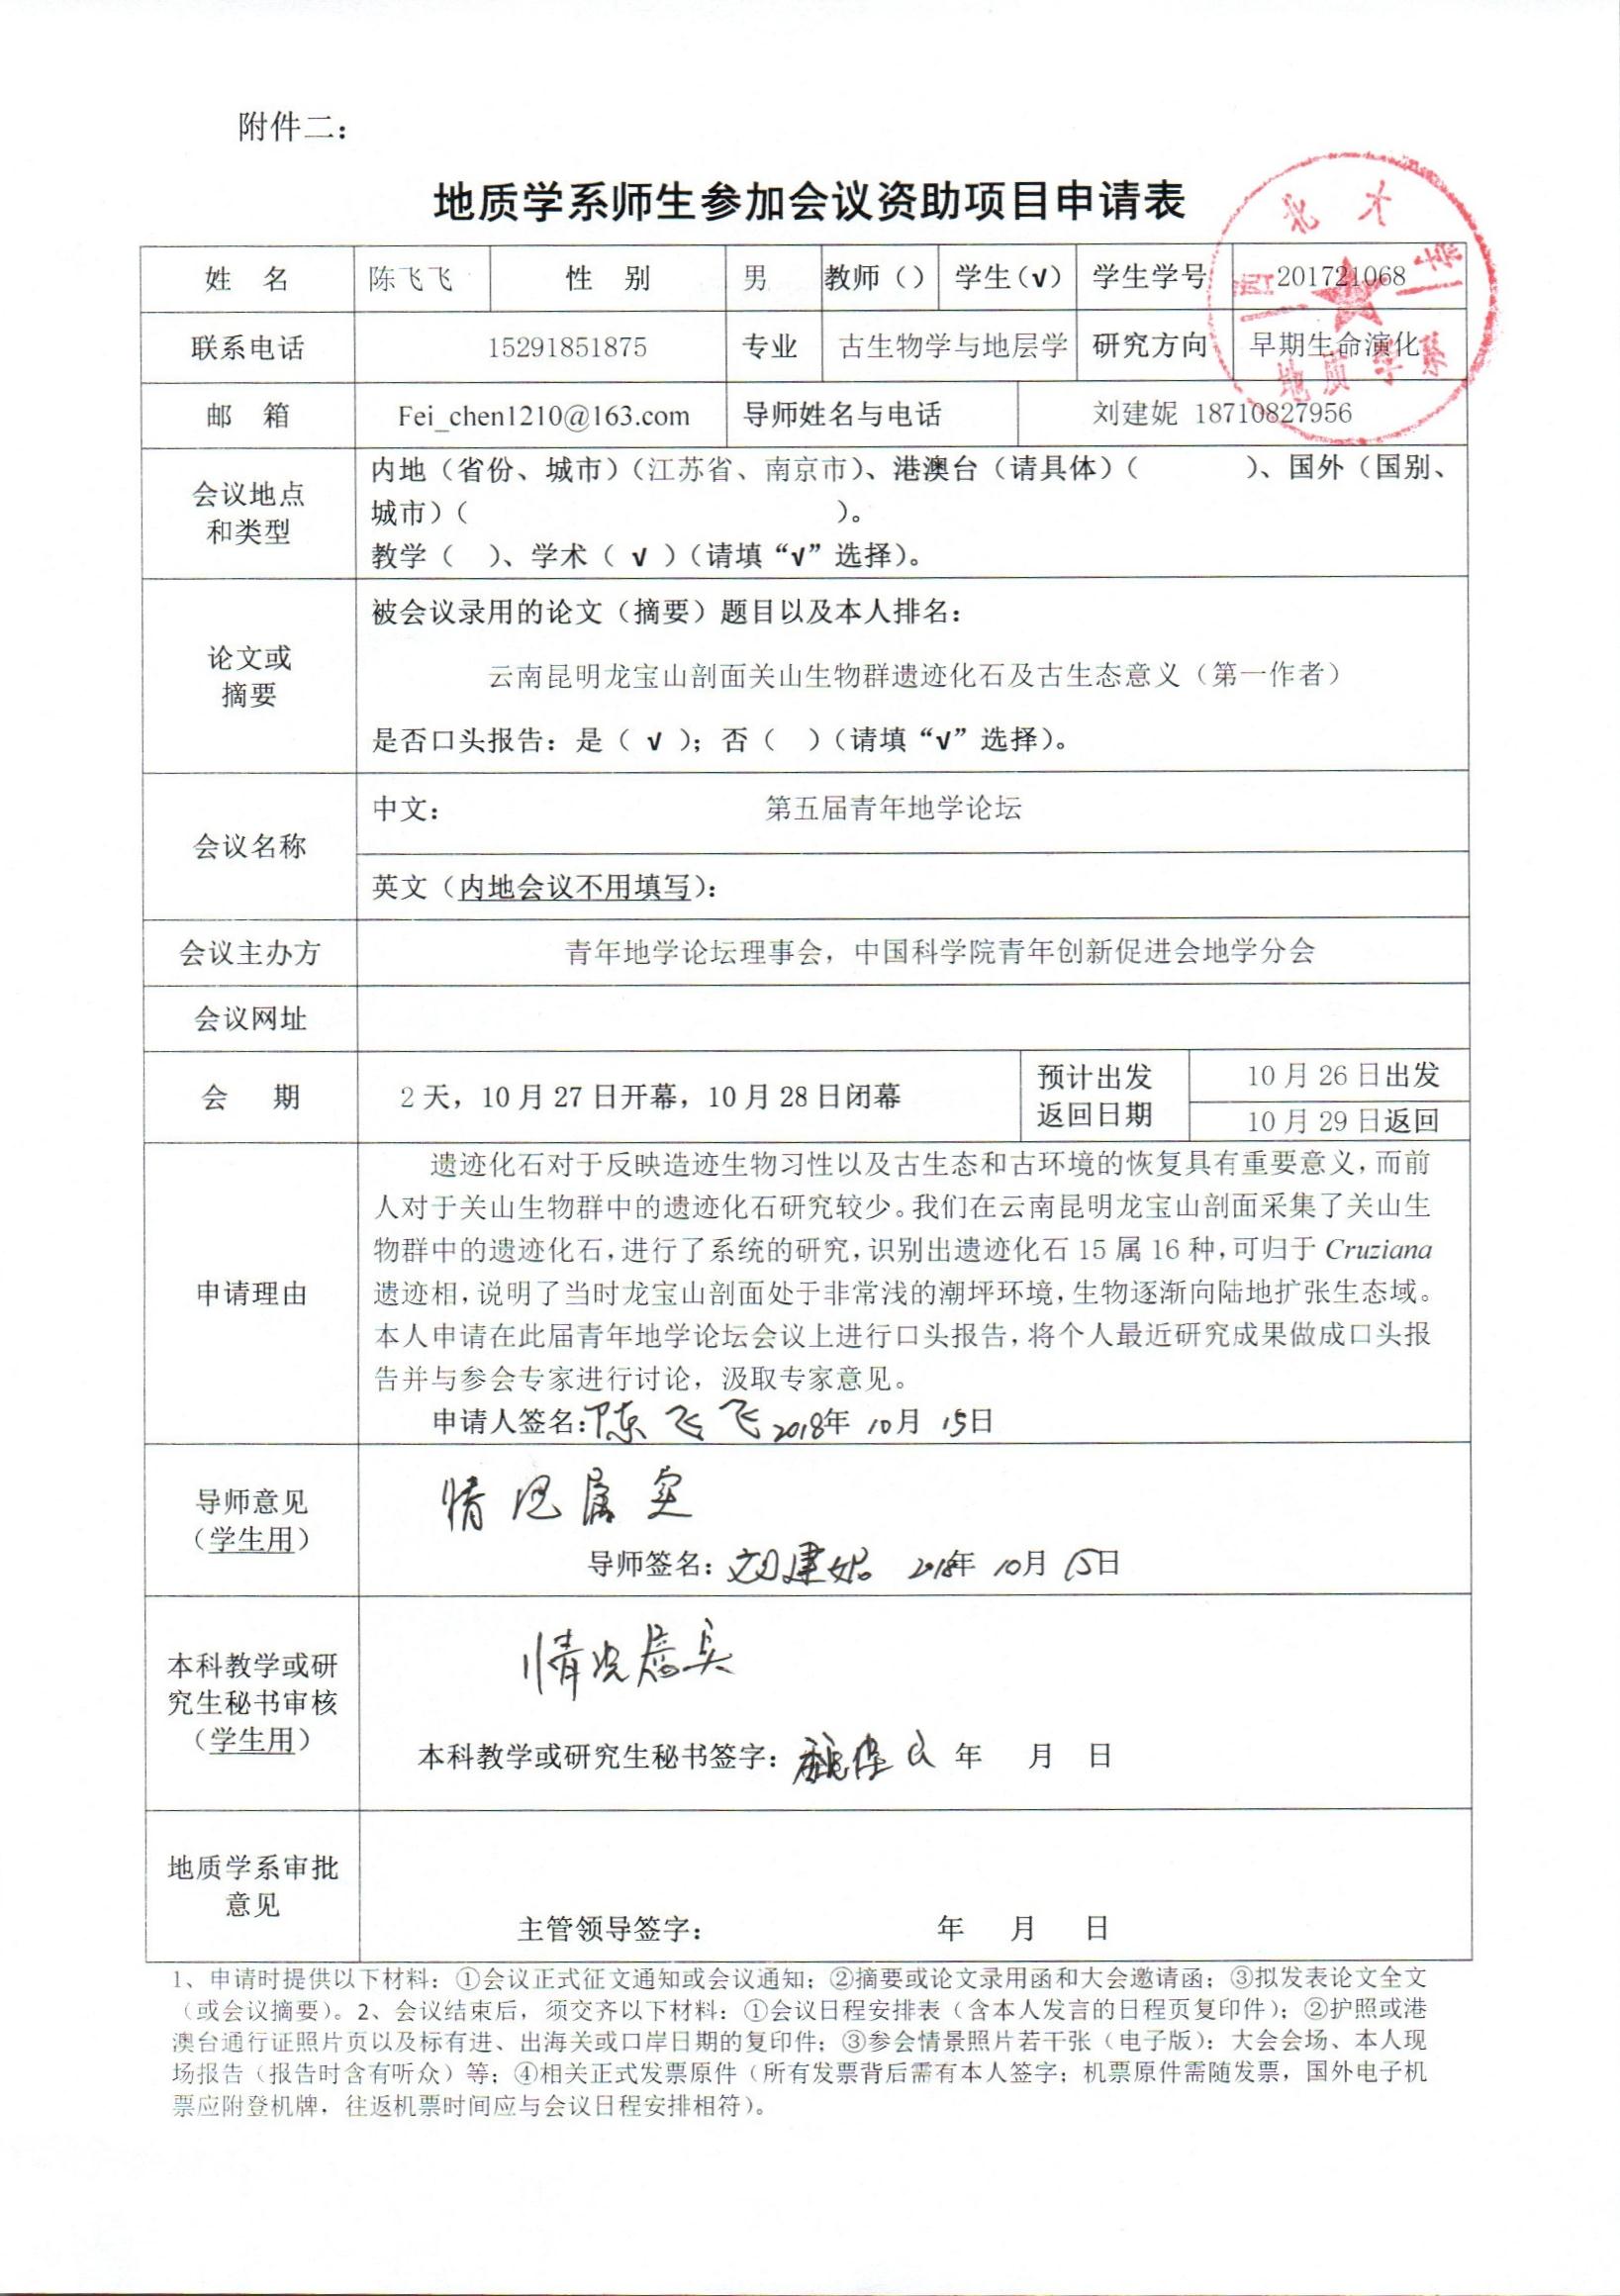 附件二：
地质学系师生参加会议资助项目申请表
西北大学
地质学系
姓 名 陈飞飞 性 别 男 教师（） 学生（√） 学生学号 201721068
联系电话 15291851875 专业 古生物学与地层学 研究方向 早期生命演化
邮 箱 Fei_chen1210@163.com 导师姓名与电话 刘建妮 18710827956
会议地点
和类型
内地（省份、城市）（江苏省、南京市）、港澳台（请具体）（ ）、国外（国别、
城市）（ ）。
教学（ ）、学术（ √ ）（请填“√”选择）。
论文或
摘要
被会议录用的论文（摘要）题目以及本人排名：
云南昆明龙宝山剖面关山生物群遗迹化石及古生态意义（第一作者）
是否口头报告：是（ √ ）；否（ ）（请填“√”选择）。
会议名称
中文： 第五届青年地学论坛
英文（内地会议不用填写）：
会议主办方 青年地学论坛理事会，中国科学院青年创新促进会地学分会
会议网址
会 期 2 天，10 月 27 日开幕，10 月 28 日闭幕
预计出发
返回日期
10 月 26 日出发
10 月 29 日返回
申请理由
遗迹化石对于反映造迹生物习性以及古生态和古环境的恢复具有重要意义，而前
人对于关山生物群中的遗迹化石研究较少。我们在云南昆明龙宝山剖面采集了关山生
物群中的遗迹化石，进行了系统的研究，识别出遗迹化石 15 属 16 种，可归于 Cruziana
遗迹相，说明了当时龙宝山剖面处于非常浅的潮坪环境，生物逐渐向陆地扩张生态域。
本人申请在此届青年地学论坛会议上进行口头报告，将个人最近研究成果做成口头报
告并与参会专家进行讨论，汲取专家意见。
申请人签名：陈飞飞 2018年 10月 15日
导师意见
（学生用）
情况属实
导师签名：刘建妮 2018年 10月 15日
本科教学或研
究生秘书审核
（学生用）
情况属实
本科教学或研究生秘书签字： 年 月 日
地质学系审批
意见
主管领导签字： 年 月 日
1、申请时提供以下材料：①会议正式征文通知或会议通知；②摘要或论文录用函和大会邀请函；③拟发表论文全文
（或会议摘要）。2、会议结束后，须交齐以下材料：①会议日程安排表（含本人发言的日程页复印件）；②护照或港
澳台通行证照片页以及标有进、出海关或口岸日期的复印件；③参会情景照片若干张（电子版）：大会会场、本人现
场报告（报告时含有听众）等；④相关正式发票原件（所有发票背后需有本人签字；机票原件需随发票，国外电子机
票应附登机牌，往返机票时间应与会议日程安排相符）。